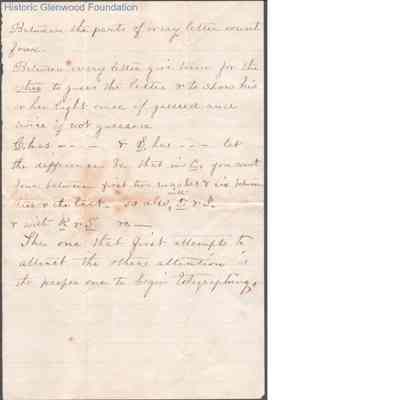 Historic Glenwood Foundation
Between the parts of every letter count
four.
Between every letter give time for the
other to guess the letter & to show his
or her light once if guessed and
twice if not guessed
C has -- - & has - - - let
the difference be that in C. you count
four between first two and six between
two & the last. so also, with &
& with R & S.
The one that first attempts to
attract the others attention is
the proper one to begin telegraphing.